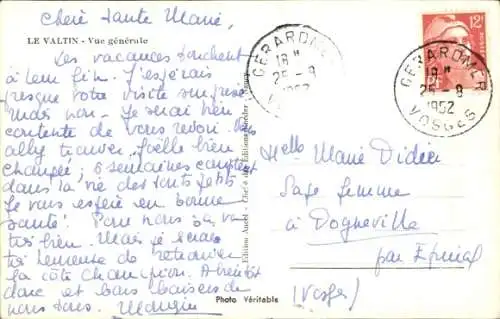 Chère tante Marie,
LE VALTIN - Vue générale
Les vacances touchent
à leur fin. J'espérais
presque votre visite surprise
mais non. Je serai bien
contente de vous revoir. Vous
allez trouver Joëlle bien
changée ; 6 semaines comptent
dans la vie des touts petits.
Je vous espère en bonne
santé. Pour nous ça va
très bien. Mais je serai
heureuse de retrouver
la côte Champion. A bientôt
donc et bons baisers de
nous tous.
Photo Véritable
GERARDMER
18 H
25 - 8
1952
VOSGES
12F
GERARDMER
18 H
25 - 8
1952
VOSGES
Melle Marie Didier
Sage femme
à Dogneville
par Epinal
(Vosges)